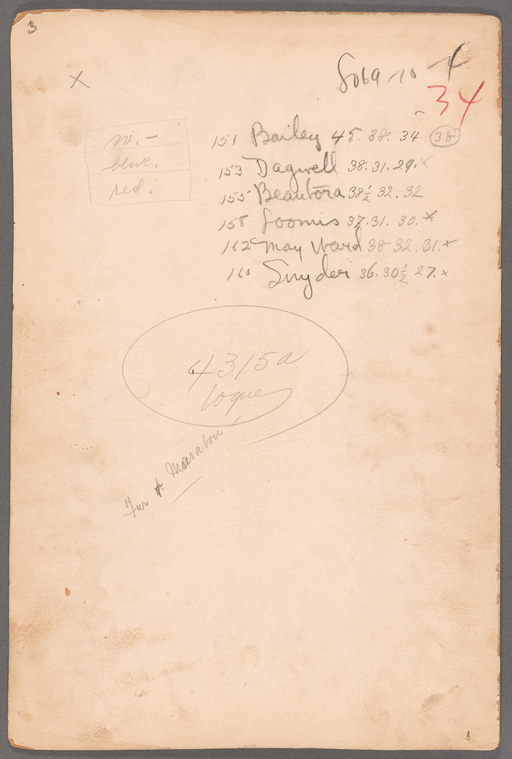 3
x
8069-10-4
34
no. -
blue.
red.
151 Bailey 45. 38. 34 38
153 Dagwell 38. 31. 29. x
155 Beautora 38½ 32. 32
158 Loomis 37. 31. 30. x
162 May Ward 38 32. 31. x
160 Snyder 36. 30½ 27. x
4315a
toque
Fur & Marabou